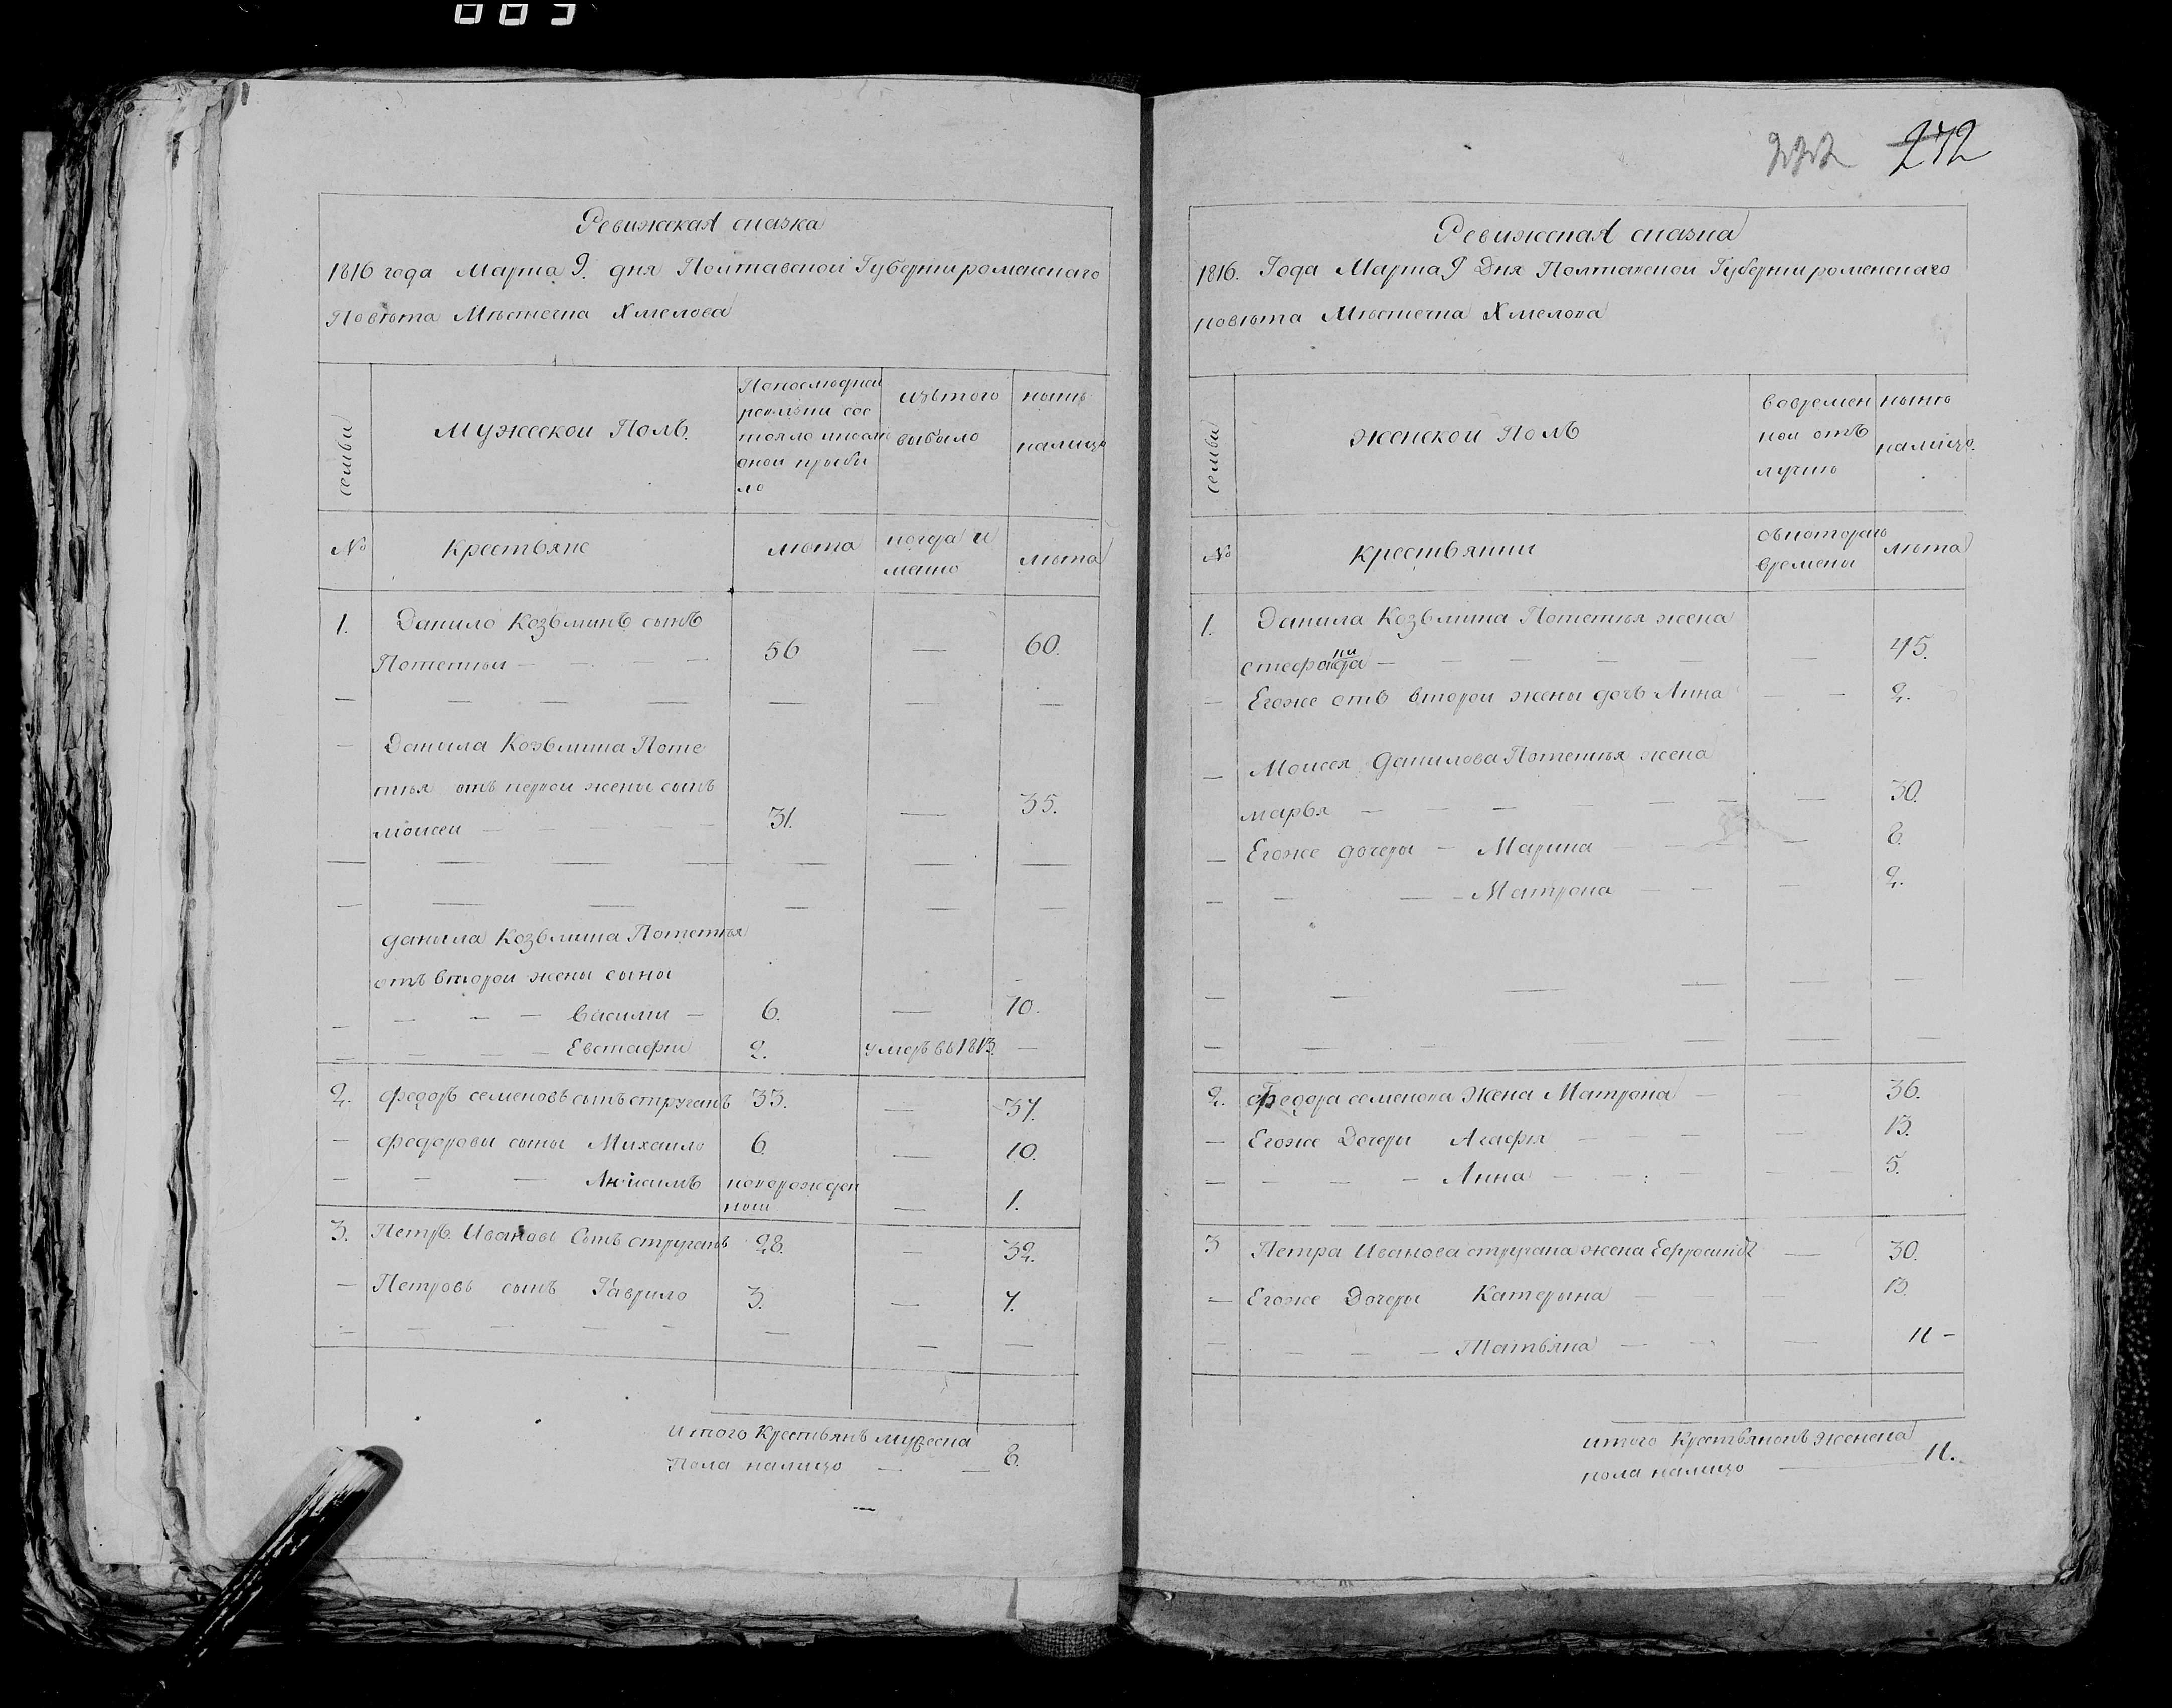 003
Ревижская сказка
1816 года Марта 9. дня Полтавской Губерни роменского
Повѣта Мѣстечка Хмелова
семьи
Мужескои Полъ.
Попослюдней
ревизии сос
тояло ипосле
оной прибы
ло
изъ того
выбыло
нынѣ
налицо
№
Крестьяне
лѣта
когда и
лѣта
1.
Данило Козьминъ сынъ
Потетни
56
60.
Данила Козьмина Поте
тня отъ первои жены сынъ
моисеи
31.
35.
данила Козьмина Потетня
отъ второи жены сыны
Васили
6.
10.
Евстафи
2.
умеръ въ 1813.
2.
федоръ семеновъ сынъ струганъ
33.
37.
федоровы сыны Михаило
6
10.
Якимъ
новорожден
нои
1.
3.
Петръ Ивановъ Сынъ струганъ
28.
32.
Петровъ сынъ Гаврило
3.
7.
итого Крестьянъ мужеска
Пола налицо
8.
232 272
Ревижская сказка
1816. Года Марта 9 Дня Полтавской Губерни роменского
повѣта Мѣстечка Хмелова
семьи
женскои Полъ
во времен
нои отъ
лучкѣ
нынѣ
налицо.
№
крестьянки
съ котораго
времены
лѣта
1.
Данила Козьмина Потетня жена
45.
Егоже отъ второи жены дочь Анна
2.
Моисея Данилова Потетня жена
марья
30.
Егоже дочеры Марина
8.
Матрона
2.
2.
федора семенова Жена Матрона
36.
Егоже Дочери Агафия
13.
Анна
5.
3
Петра Иванова стругана жена Ефросиния
30.
Егоже Дочеры Катерына
13.
Татьяна
11
итого Крестьянокъ женска
пола налицо
11.